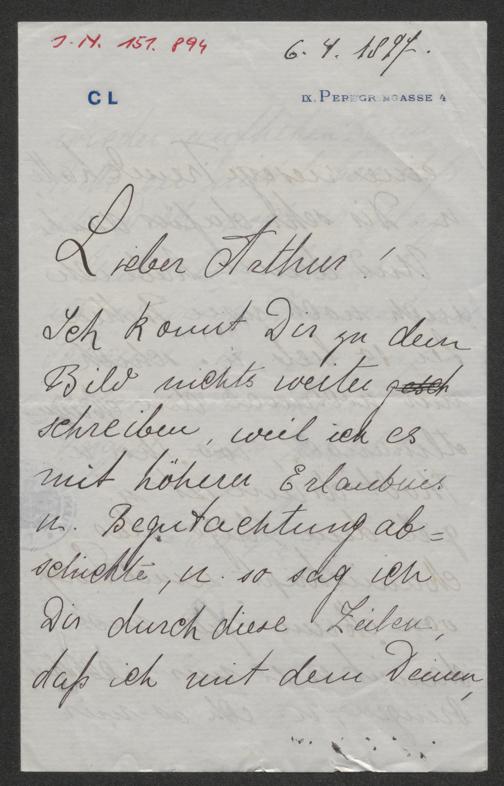 J. N. 151. 894
6. 4. 1897.
CL
IX. PEREGRINGASSE 4
Lieber Arthur!
Ich konnt Dir zu dem
Bild nichts weiter gesch
schreiben, weil ich es
mit höherer Erlaubnis
u. Begutachtung ab=
schickte, u. so sag ich
Dir durch diese Zeilen,
daß ich mit dem Deinen,